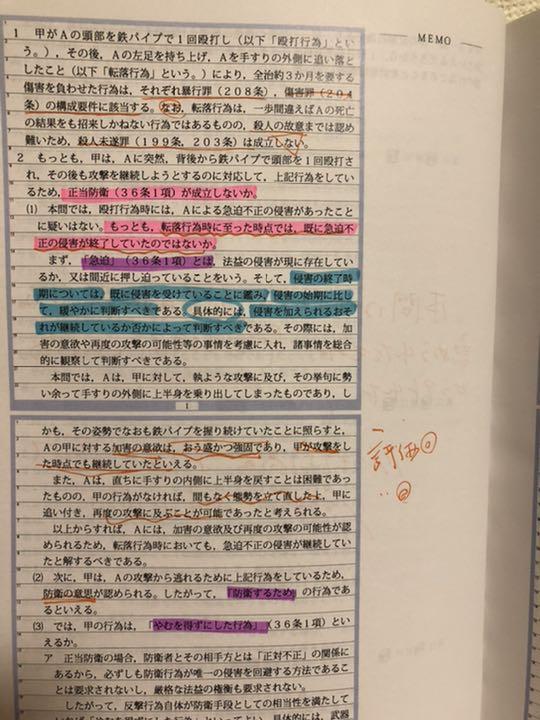 MEMO
1 甲がAの頭部を鉄パイプで1回殴打し(以下「殴打行為」とい
う。),その後,Aの左足を持ち上げ,Aを手すりの外側に追い落と
したこと(以下「転落行為」という。)により,全治約3か月を要する
傷害を負わせた行為は,それぞれ暴行罪(208条),傷害罪(204
条)の構成要件に該当する。なお,転落行為は,一歩間違えばAの死亡
の結果をも招来しかねない行為ではあるものの,殺人の故意までは認め
難いため,殺人未遂罪(199条,203条)は成立しない。
2 もっとも,甲は,Aに突然,背後から鉄パイプで頭部を1回殴打さ
れ,その後も攻撃を継続しようとするのに対応して,上記行為をしてい
るため,正当防衛(36条1項)が成立しないか。
(1) 本問では,殴打行為時には,Aによる急迫不正の侵害があったこと
に疑いはない。もっとも,転落行為時に至った時点では,既に急迫不
正の侵害が終了していたのではないか。
まず,「急迫」(36条1項)とは,法益の侵害が現に存在してい
るか,又は間近に押し迫っていることをいう。そして,侵害の終了時
期については,既に侵害を受けていることに鑑み,侵害の始期に比し
て,緩やかに判断すべきである。具体的には,侵害を加えられるおそ
れが継続しているか否かによって判断すべきである。その際には,加
害の意欲や再度の攻撃の可能性等の事情を考慮に入れ,諸事情を総合
的に観察して判断すべきである。
本問では,Aは,甲に対して,執ような攻撃に及び,その挙句に勢
い余って手すりの外側に上半身を乗り出してしまったものであり,し
1
かも,その姿勢でなおも鉄パイプを握り続けていたことに照らすと,
Aの甲に対する加害の意欲は,おう盛かつ強固であり,甲が攻撃をし
た時点でも継続していたといえる。
また,Aは,直ちに手すりの内側に上半身を戻すことは困難であっ
たものの,甲の行為がなければ,間もなく態勢を立て直した上,甲に
追い付き,再度の攻撃に及ぶことが可能であったと考えられる。
以上からすれば,Aには,加害の意欲及び再度の攻撃の可能性が認
められるため,転落行為時においても,急迫不正の侵害が継続してい
たと解するべきである。
(2) 次に,甲は,Aの攻撃から逃れるために上記行為をしているため,
防衛の意思が認められる。したがって,「防衛するため」の行為であ
るといえる。
(3) では,甲の行為は,「やむを得ずにした行為」(36条1項)とい
えるか。
ア 正当防衛の場合,防衛者とその相手方とは「正対不正」の関係に
あるから,必ずしも防衛行為が唯一の侵害を回避する方法であるこ
とは要求されないし,厳格な法益の権衡も要求されない。
したがって,反撃行為自体が防衛手段としての相当性を満たして
評価◎